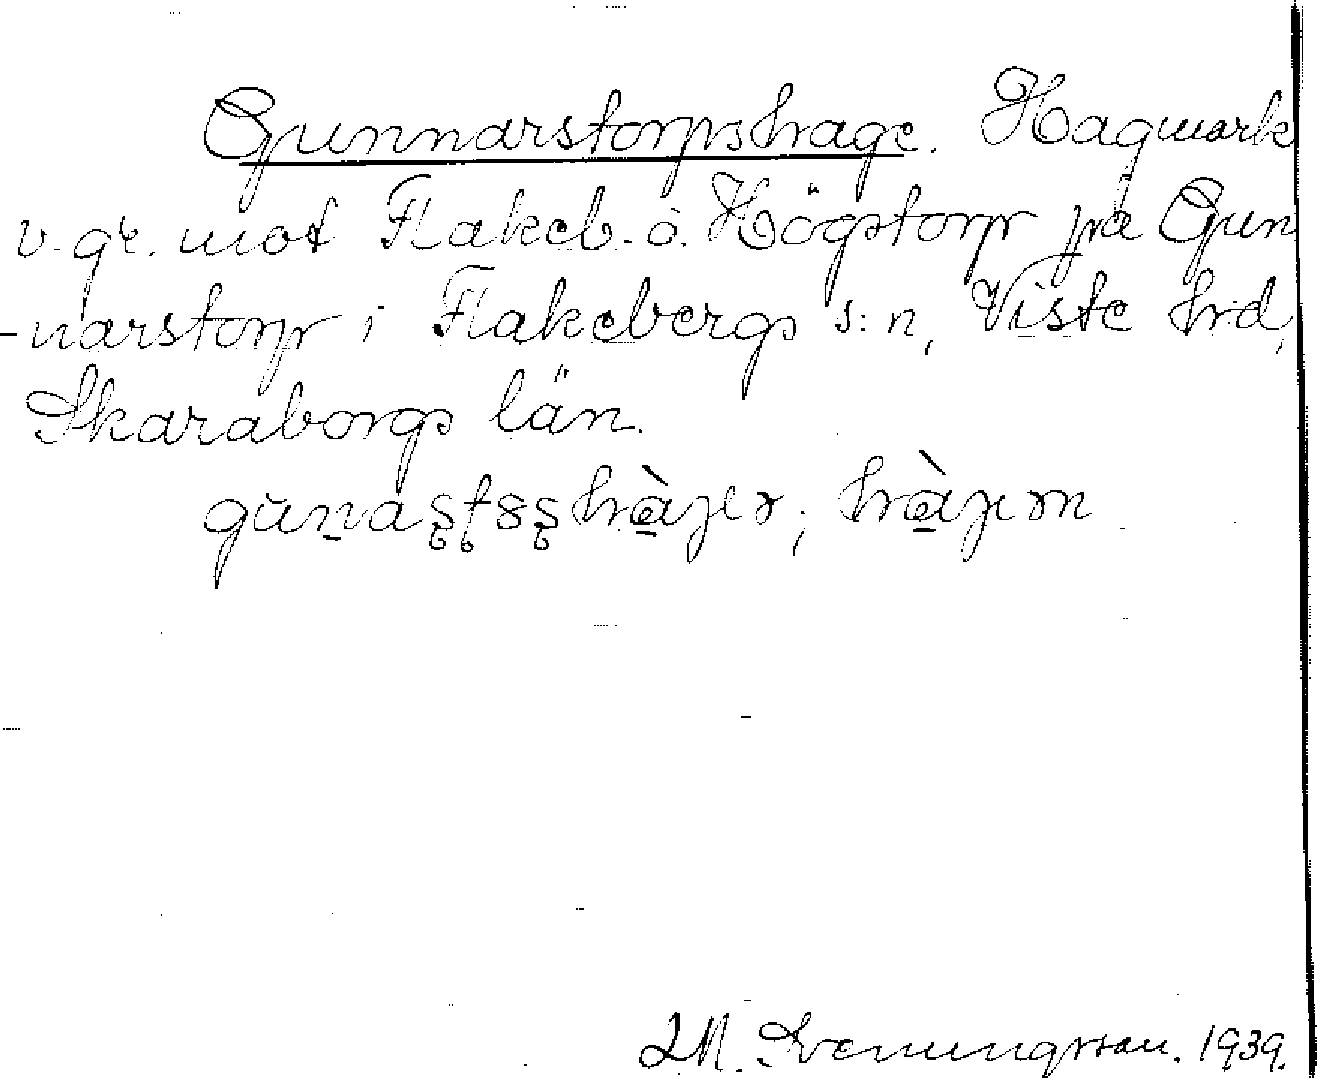 Gunnarstorpshage. Hagmark
v. gr. mot Flakeb. o. Högstorp på Gun
-narstorp i Flakebergs s:n, Viste hrd,
Skaraborgs län.
hàjen
M. Svenungsson. 1939.